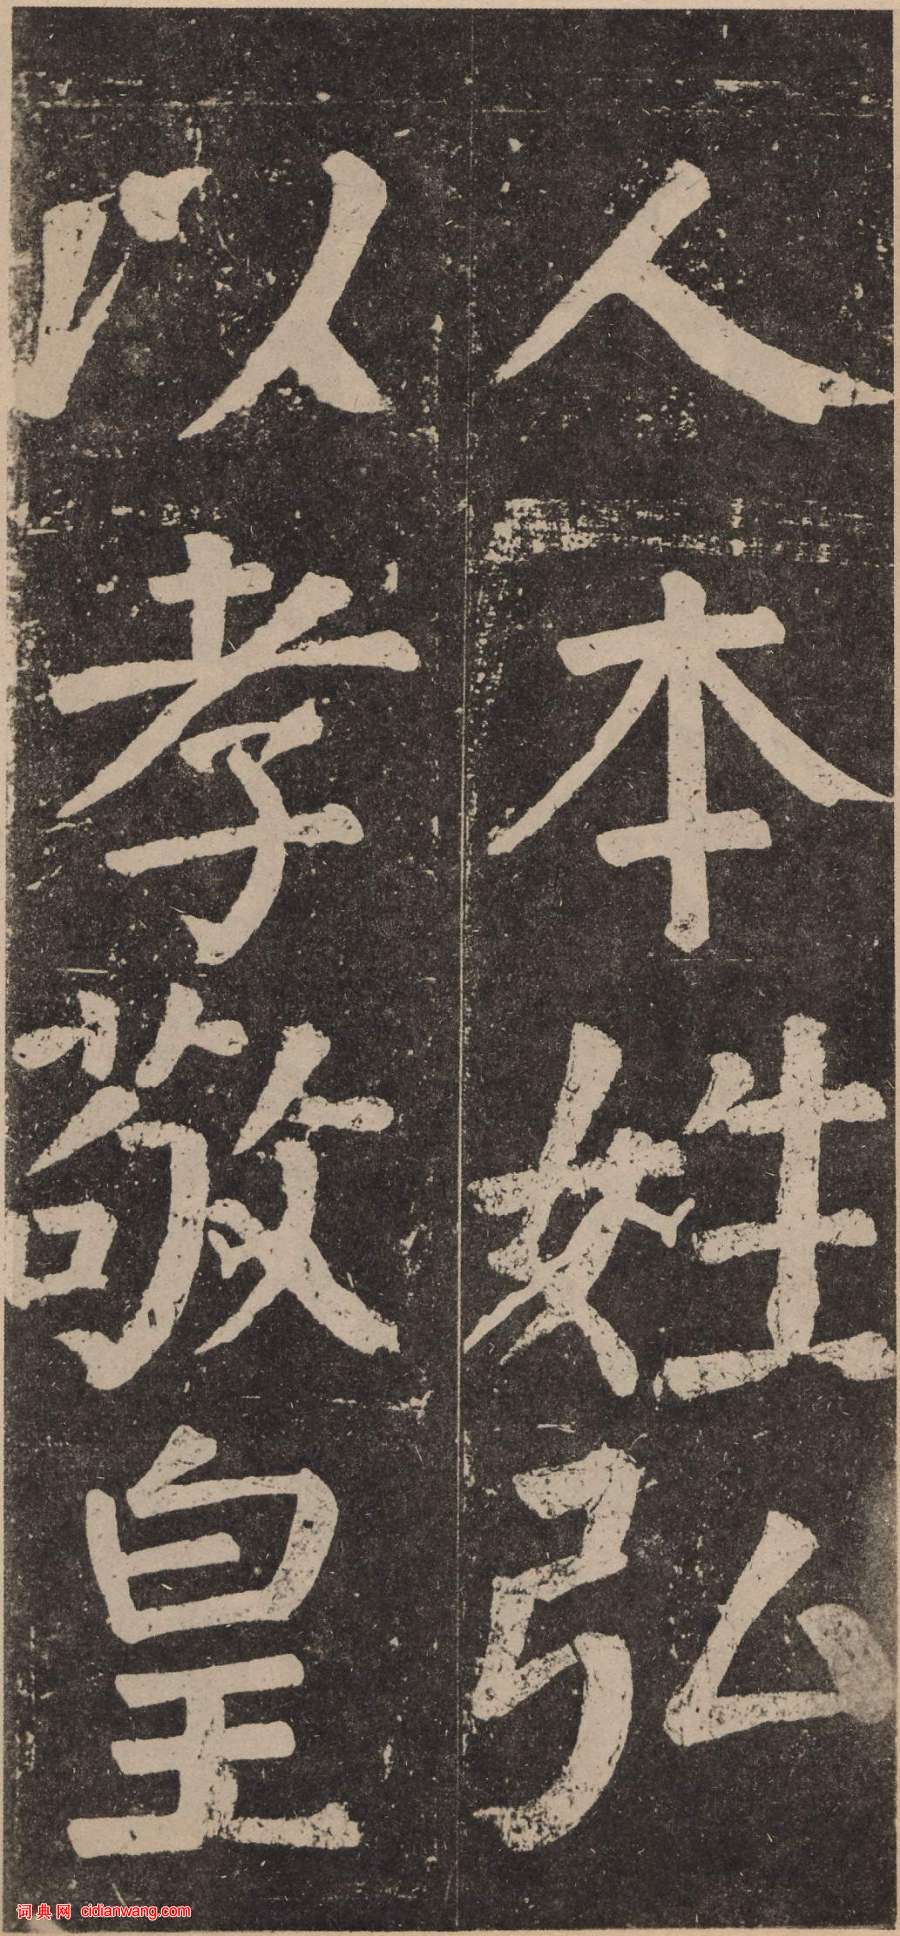 人本姓弘
以孝敬皇
词典网 cidianwang.com